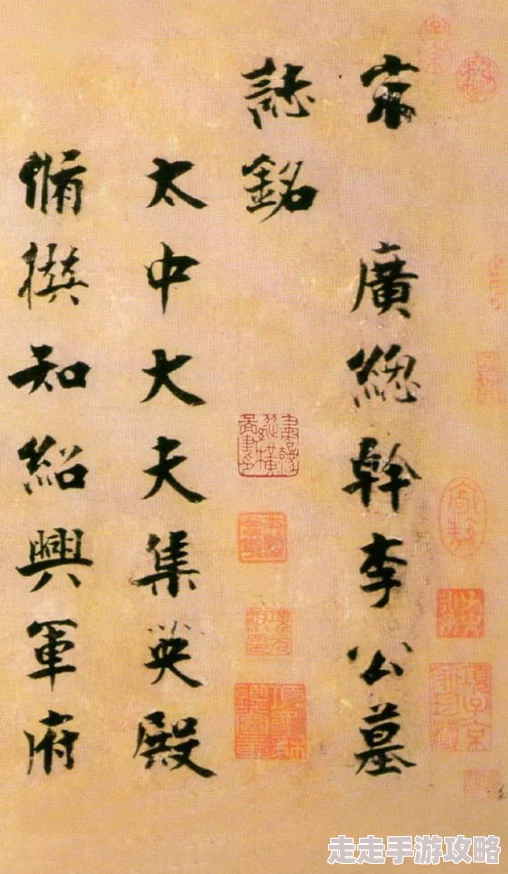 宋 廣總幹李公墓
誌銘
太中大夫集英殿
脩撰知紹興軍府
走走手游攻略